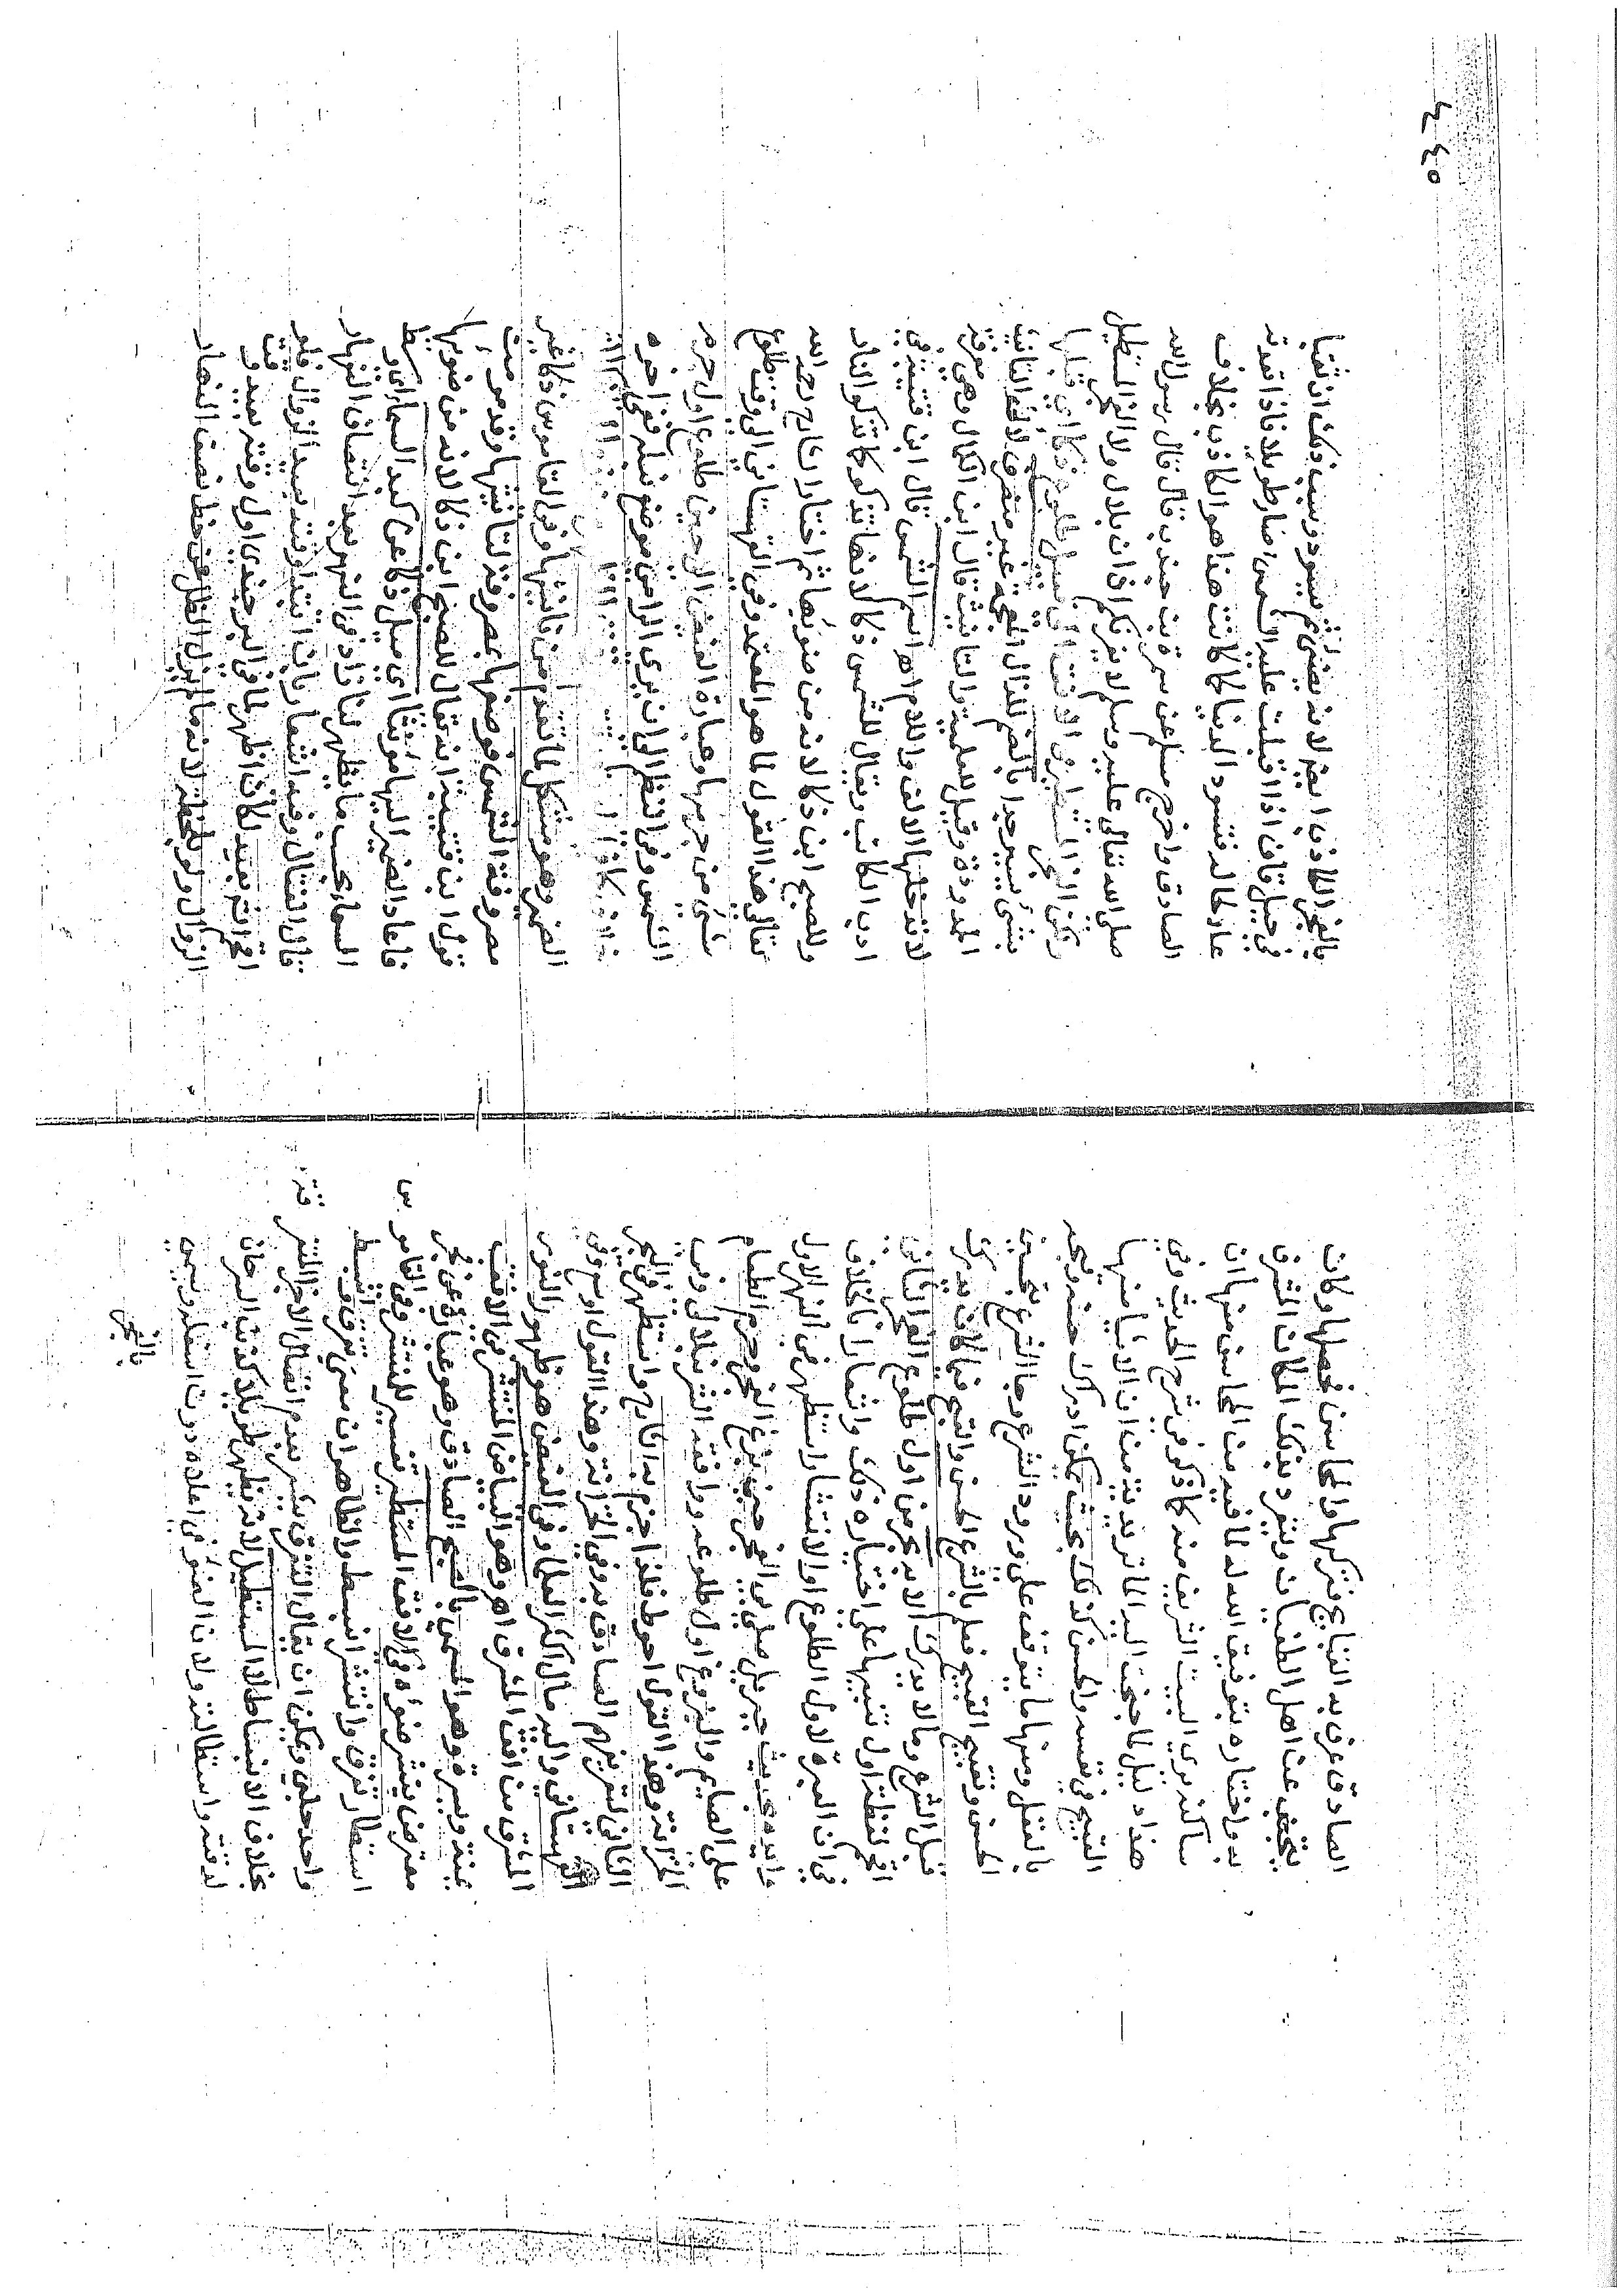 ٤٤٥
الصادق عرف به القبايح فتركها والمحاسن ففعلها وكان
يتحجب عن اهل الطغيان وينفرد بذلك المكان المشرق
به واختاره بتوفيق الله له لما فيه من المحاسن منها ان
ساكنه يرى البيت الشريف منه كما ذكر في شرح الحديث وفي
هذا دليل لما جنحت اليه الماتريدية من ان الاشيا منها
القبيح في نفسه والحسن كذلك بحيث يمكن ادراك حسنه وقبحه
بالعقل ومنها ما يتوقف على ورود الشرع وجا الشرع بتحسين
الحسن وتقبيح القبيح فعلم بالشرع الحسن والقبح فيما كان يدرك
قبل الشرع وما لا يدرك الا به من اول طلوع الفجر الثاني
اقحم لفظة اول تنبيها على اختياره ذلك واشعارا بالخلاف
في ان العبرة لاول الطلوع او الانتشار استظهر في النهر الاول
وايده بحديث جبريل صلى بي الفجر حين بزغ الفجر وحرم الطعام
على الصايم والبزوغ اول طلوعه ووافقه الشرنبلالي وفي
الخزانة وهذا القول احوط فلذا جزم به الشارح واستظهر في البحر
الثاني لتعريفهم الصادق به وفي الخزانة وهذا القول اوسع وفي
القهستاني واليه مال اكثر العلما وفي الفيض هو ظهور النور في
المشرق من افق المشرق اهـ وهو البياض المنتشر في الافق
يمنة ويسرة وهو المسمى بالصبح الصادق وهو عبارة عن فجر
معترض ينتشر ضوئه في الافق المستطير تفسير للمنتشر وفي القاموس
استطار تفرق وانتشر انبسط والظاهر ان معنى تفرق وانبسط
واحد حلبي ويمكن ان يقال التفرق يشعر بعدم اتصال الاجزا المتفرقة
بخلاف الانبساط لا المستطيل لانه يظهر طويلا كذنب السرحان
لدقته واستطالته ولان الضوء في اعلاه دون اسفله ويسمى
بالفجر
بالفجر الكاذب ايضا لانه يضيئ ثم يسود وسبب ذلك ان ثقبا
في جبل قاف اذا اقبلت عليه الشمس اضا طويلا فاذا فقدته
عاد لحاله فتسود الدنيا كما كانت هذا هو الكاذب بخلاف
الصادق واخرج مسلم عن سمرة بن جندب قال قال رسول الله
صلى الله تعالى عليه وسلم لا يغرنكم اذان بلال ولا الفجر المستطيل
ولكن الفجر المستطير في الافق الى قبيل طلوع ذكا اي قبلها
بشيء يسير جدا بالضم للذال المعجمة غير منصرف لالف التانيث
الممدودة وقيل للعلمية والتانيث قال ابن الكمال وهي معرفة
لا تدخلها الالف واللام اهـ اسم الشمس قال ابن قتيبة في
ادب الكاتب ويقال للشمس ذكا لانها تذكو كما تذكو النار
وللصبح ابن ذكا لانه من ضوئها ثم اختار الشارح رحمه الله
تعالى هذا القول لما هو المعتمد وفي القهستاني الى وقت طلوع
شيء من جرمها وعبارة الفيض الى حين طلوع اول جرم
الشمس وفي النظم الى ان يرى الرامي موضع نبله ففي اخره
خلاف
الضمير وهو مشكل لما تقدم من تانيثها وفي القاموس ذكا غير
مصروفة الشمس فوصفها بمصروفة لتانيثها وقد مر من
قول ابن قتيبة انه يقال للصبح ابن ذكا لانه من ضوئها
فاعاد الضمير اليها مؤنثا اي ميل ذكا عن كبد السماء اي وسط
السماء بحسب ما يظهر لنا زاد في النهر بعد انتصاف النهار
قال الفتال وفيه اشعار بان ابتدا وقته بعيد الزوال فلو
اقحم اثر بعيد لكان اظهر لما في البرجندي اول وقته بعيد وقت
الزوال ولو بلحظة لانه ما لم يزل الظل عن خط نصف النهار